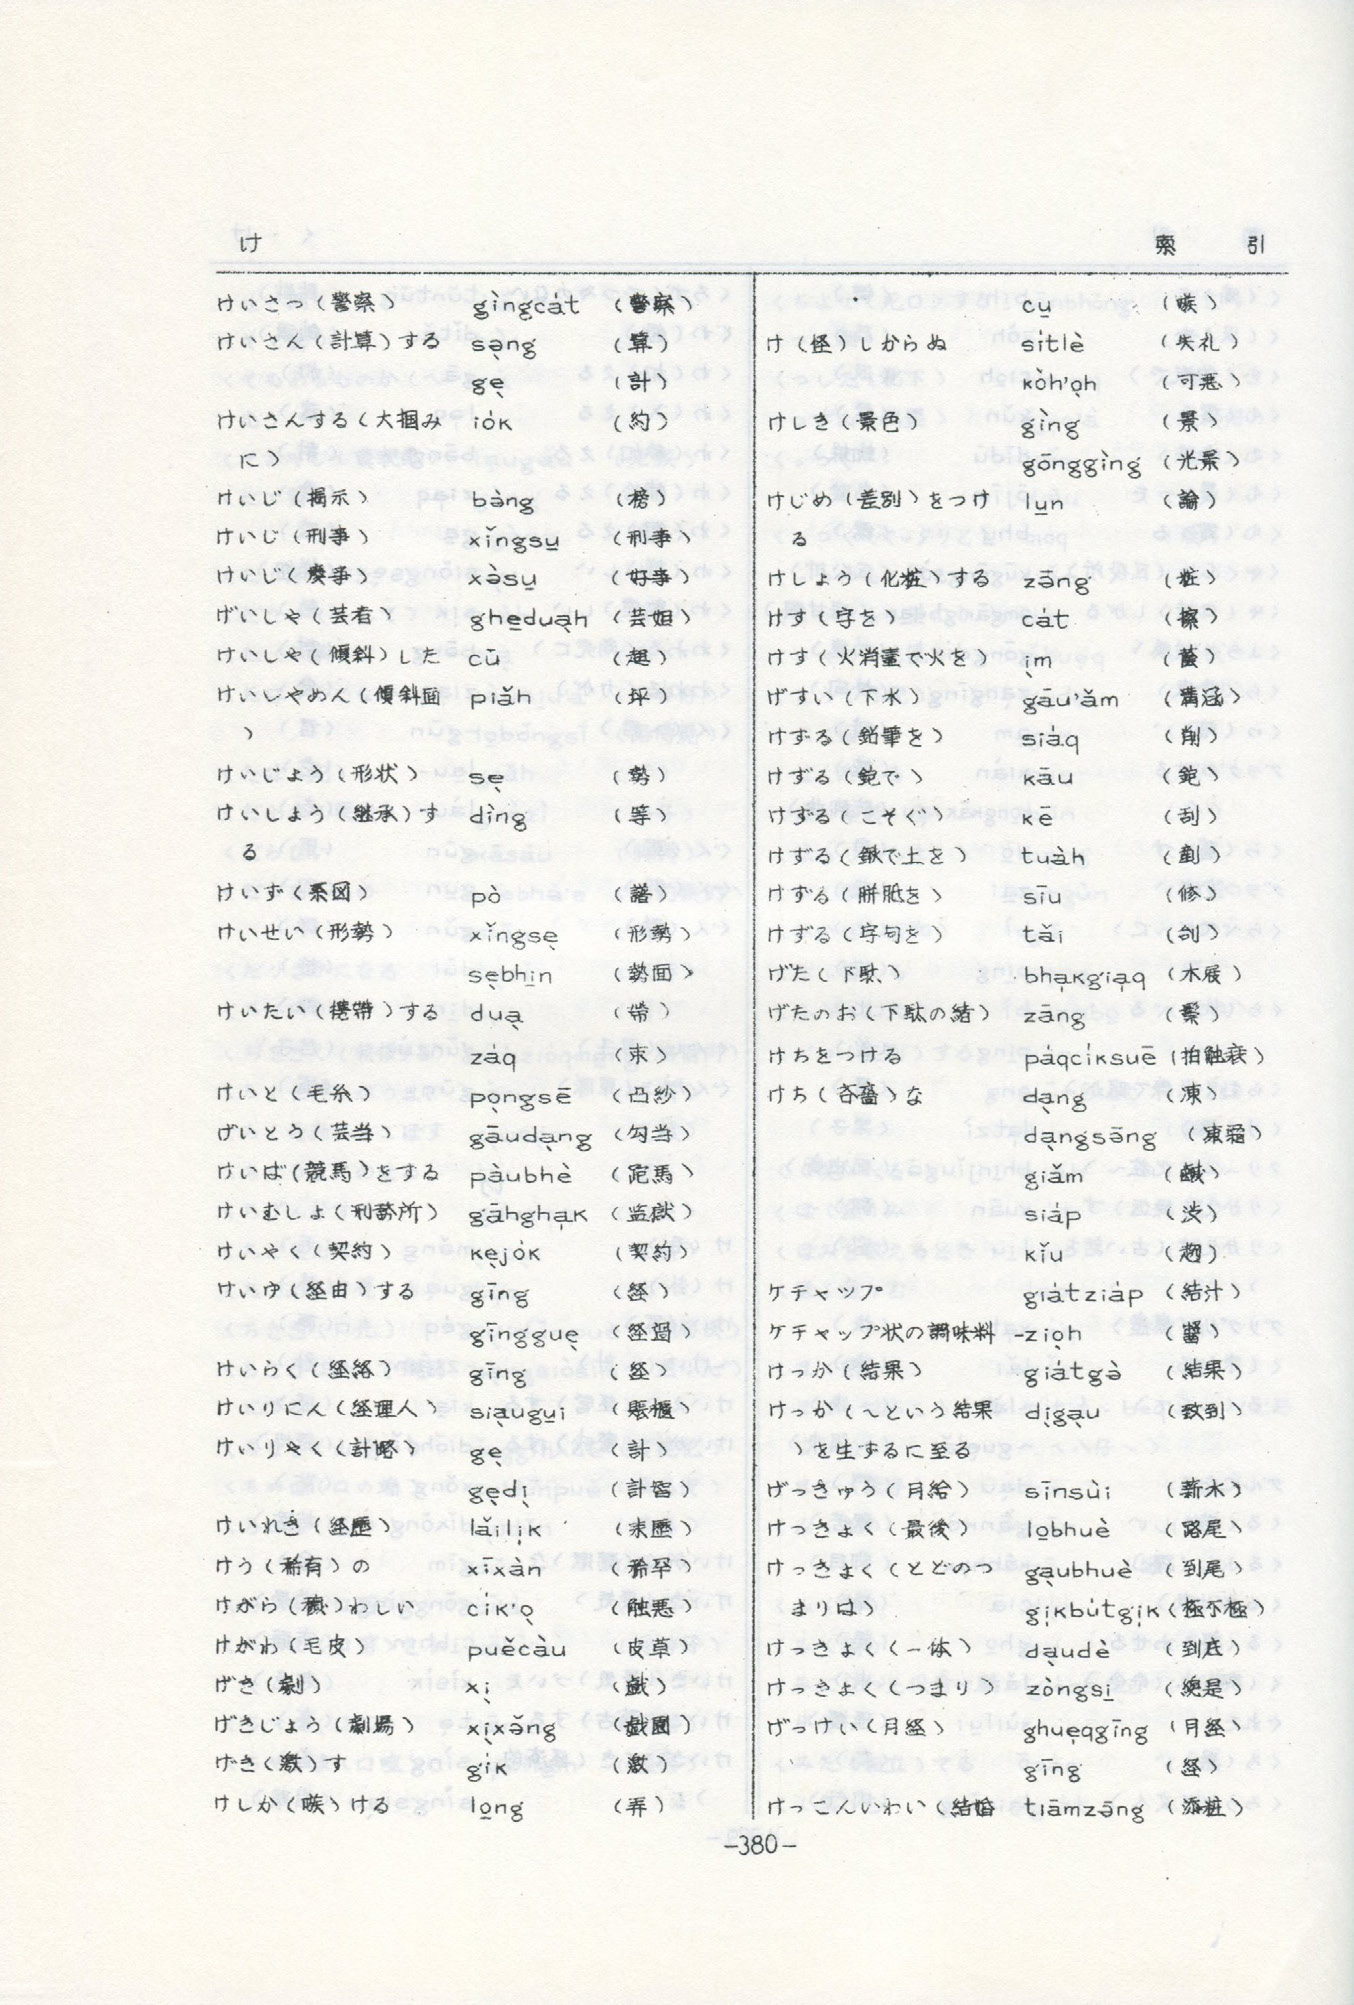 け
索 引
けいさつ（警察） gìngcát （警察）
けいさん（計算）する sə̣ng （算）
gẹ （計）
けいさんする（大掴み iók （約）
に）
けいじ（掲示） bə̀ng （榜）
けいじ（刑事） xǐngsu̱ （刑事）
けいじ（慶事） xə̣̀su̱ （好事）
げいしゃ（芸者） ghe̱duạh （芸妲）
けいしゃ（傾斜）した cū （趄）
けいしゃめん（傾斜面 piǎh （坪）
）
けいじょう（形状） sẹ （勢）
けいしょう（継承）す dìng （等）
る
けいず（系図） pò （譜）
けいせい（形勢） xǐngsẹ （形勢）
sẹbhi̱n （勢面）
けいたい（携帯）する duạ （帯）
záq （束）
けいと（毛糸） pọngsē （凸紗）
げいとう（芸当） gāudạng （勾当）
けいば（競馬）をする pàubhè （跑馬）
けいむしょ（刑務所） gāhghạk （监獄）
けいやく（契約） kẹjók （契約）
けいゆ（経由）する gīng （経）
gīngguẹ （経過）
けいらく（経絡） gīng （経）
けいりにん（経理人） siạugu̱i （賬櫃）
けいりゃく（計略） gẹ （計）
gẹdị （計智）
けいれき（経歴） lǎilịk （来歴）
けう（稀有）の xīxàn （希罕）
けがら（穢）わしい cík'ọ （触悪）
けがわ（毛皮） puěcàu （皮草）
げき（劇） xị （戯）
げきじょう（劇場） xịxə̌ng （戯園）
げき（激）す gík （激）
けしか（嗾）ける lo̱ng （弄）
cu̱ （嗾）
け（怪）しからぬ sítlè （失礼）
kòh'ọh （可悪）
けしき（景色） gìng （景）
gōnggìng （光景）
けじめ（差別）をつけ lu̱n （論）
る
けしょう（化粧）する zāng （粧）
けす（字を） cát （擦）
けす（火消壷で火を） ịm （蓋）
げすい（下水） gāu'ǎm （溝涵）
けずる（鉛筆を） siáq （削）
けずる（鉋で） kāu （鉋）
けずる（こそぐ） kē （刮）
けずる（鍬で土を） tuàh （剷）
けずる（胼胝を） sīu （修）
けずる（字句を） tǎi （刣）
げた（下駄） bhạkgiạq （木屐）
げたのお（下駄の緒） zāng （鬃）
けちをつける páqcíksuē （拍触衰）
けち（吝嗇）な dạng （凍）
dạngsə̄ng （凍霜）
giǎm （鹹）
siáp （渋）
kǐu
ケチャップ giátziáp （結汁）
ケチャップ状の調味料 -ziọh （醬）
けっか（結果） giátgə̀ （結果）
けっか（〜という結果 dịgạu （致到）
）を生ずるに至る
げっきゅう（月給） sīnsùi （薪水）
けっきょく（最後） lo̱bhuè （路尾）
けっきょく（とどのつ gạubhuè （到尾）
まりは） gịkbútgịk （極不極）
けっきょく（一体） dạudè （到底）
けっきょく（つまり） zòngsi̱ （總是）
げっけい（月経） ghuẹqgīng （月経）
gīng （経）
けっこんいわい（結婚 tiāmzə̄ng （添粧）
-380-